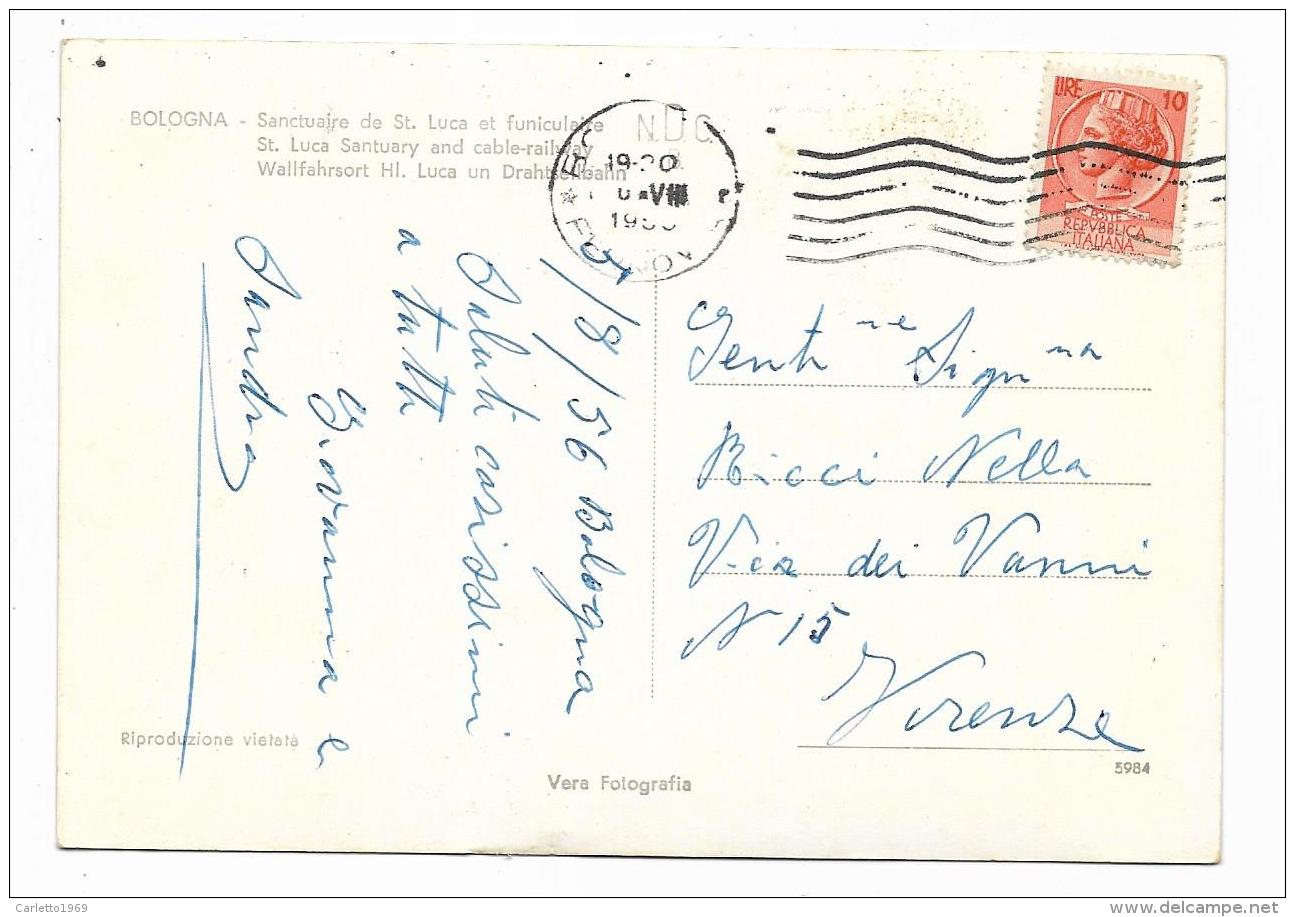 BOLOGNA - Sanctuaire de St. Luca et funiculaire
St. Luca Santuary and cable-railway
Wallfahrsort Hl. Luca un Drahtseilbahn
N.D.C.
19-20
VIII
LIRE 10
POSTE
REPVBBLICA
ITALIANA
5/8/56 Bologna
Saluti carissimi
a tutti
Giovanna e
Sandra
Gent me Sign na
Ricci Nella
Via dei Vanni
N 15
Firenze
Riproduzione vietata
Vera Fotografia
5984
Carletto1969
delcampe.net